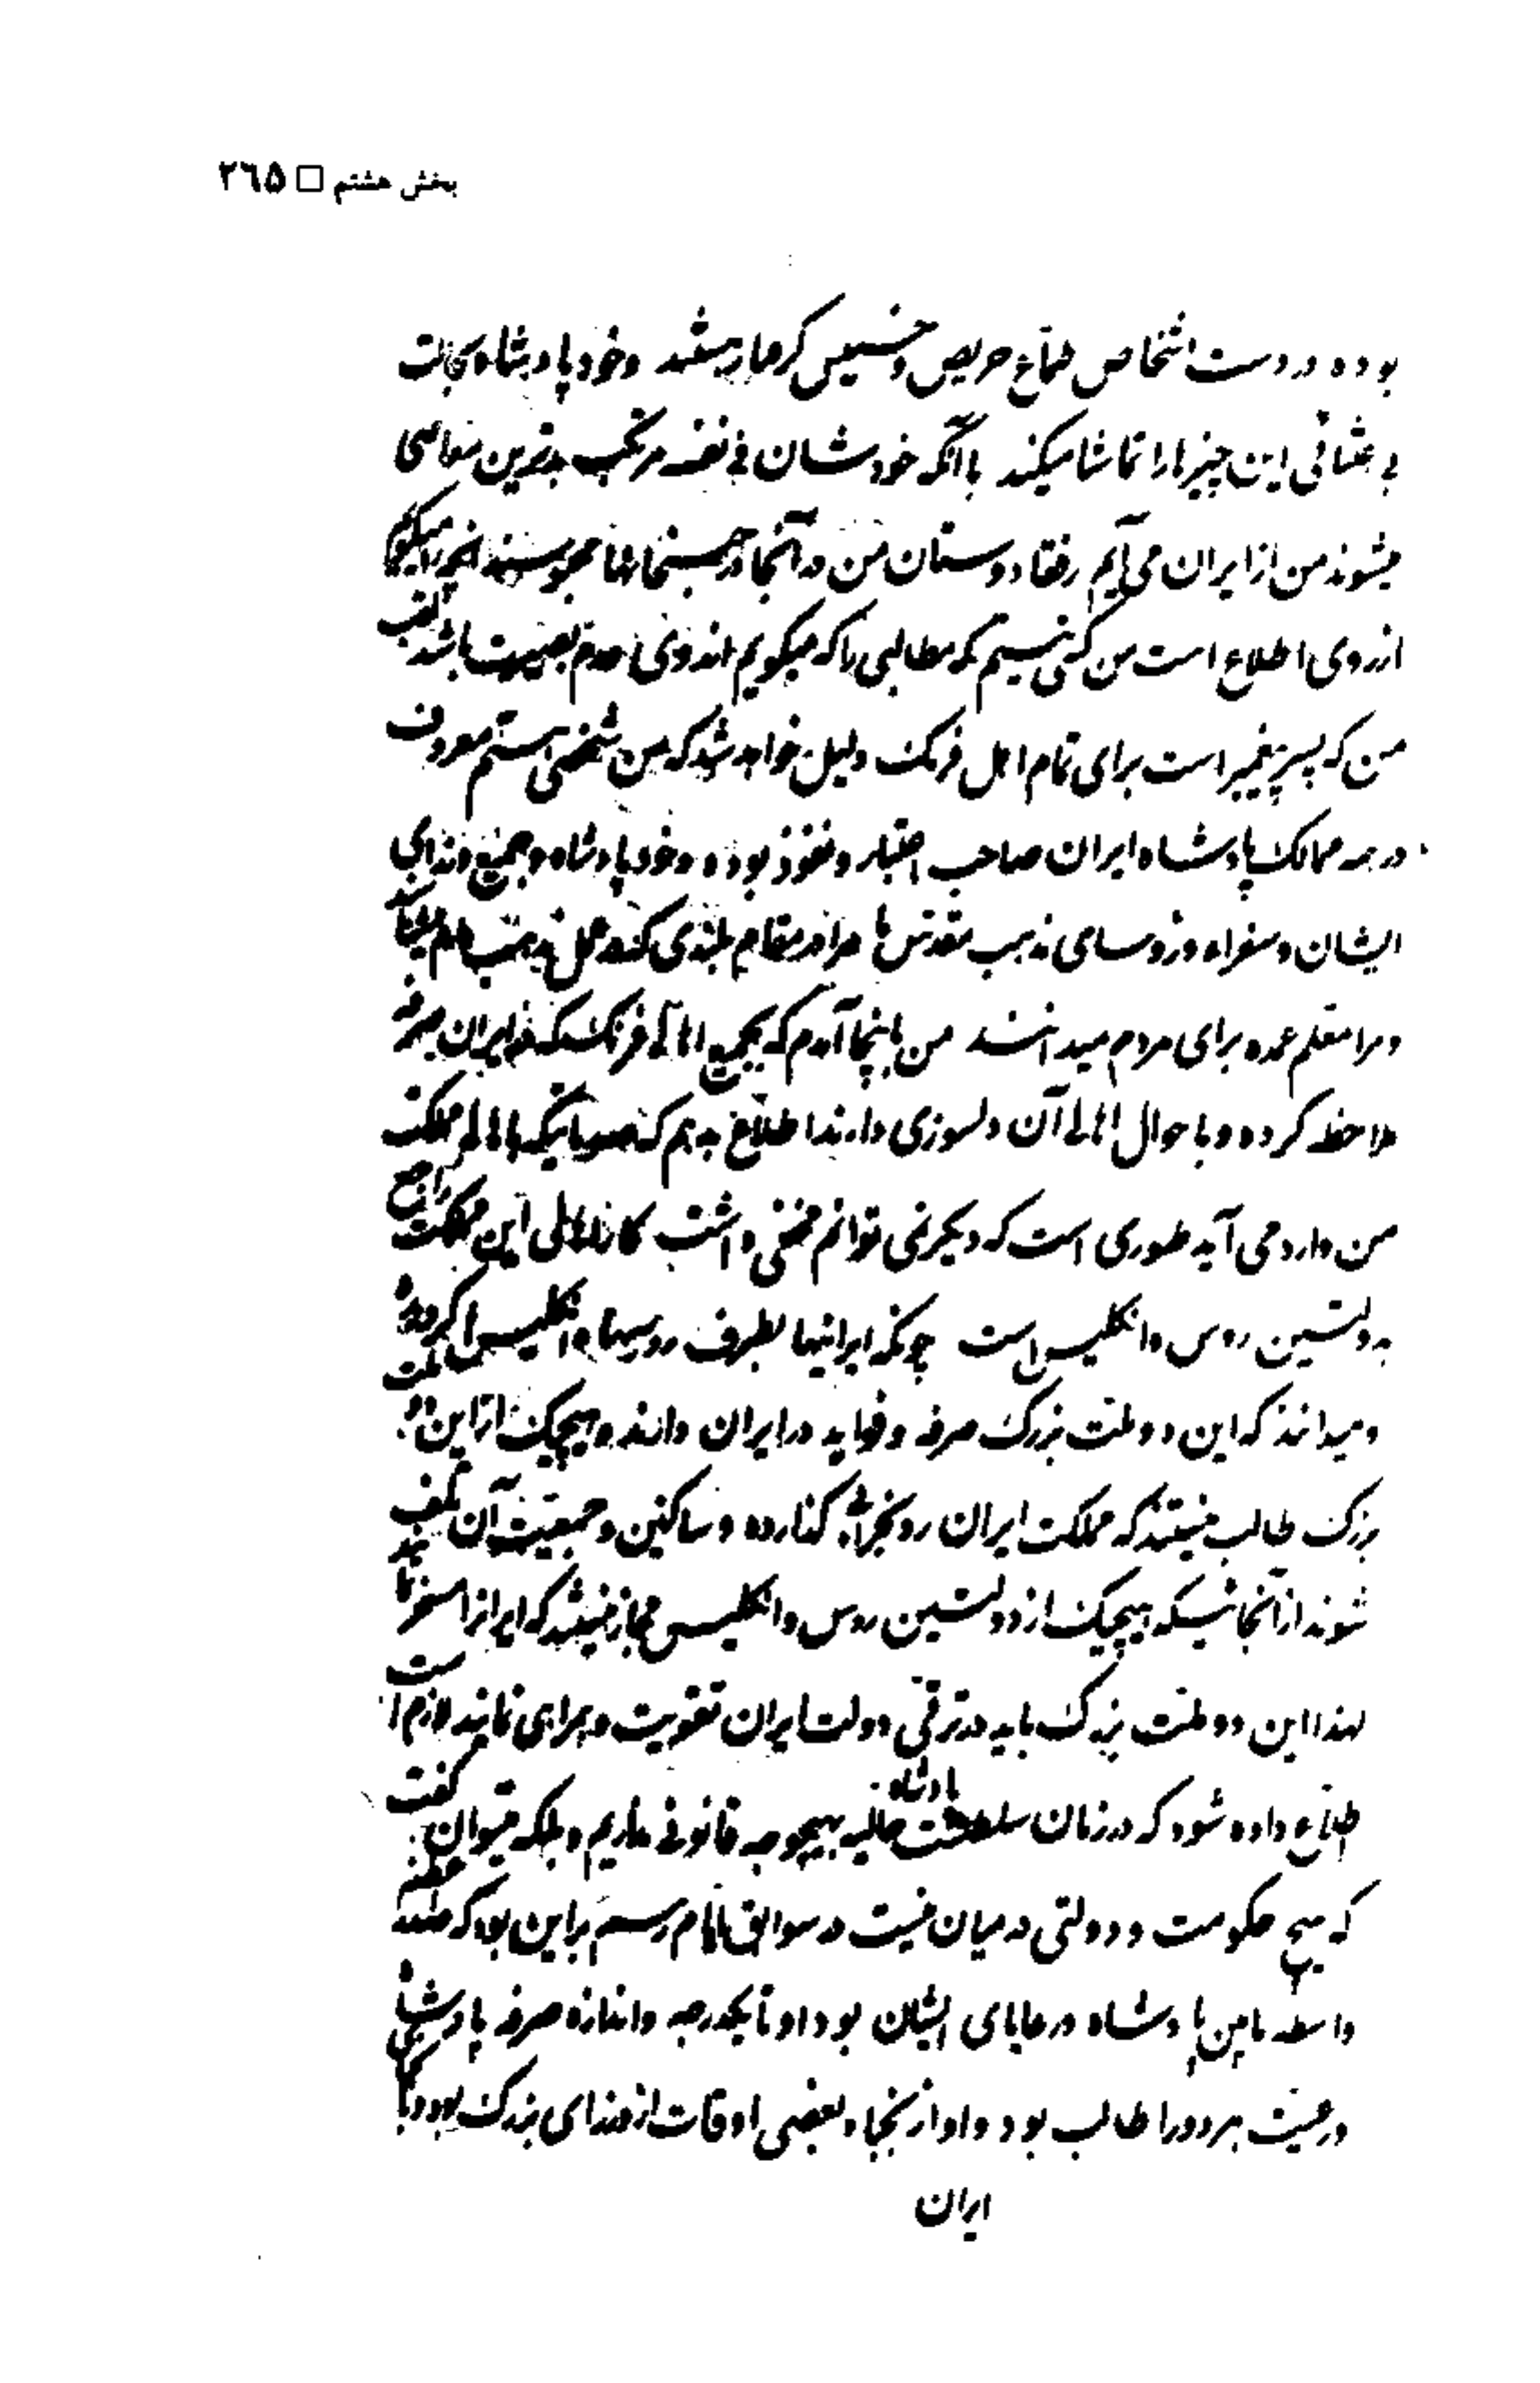 بخش هشتم □ ۲٦۵
بوده در دست اشخاص طماع حریص و خسیس گرفتار میشوند و خود پادشاه بحالت
بی‌اعتنائی این چیزها را تماشا میکند با آنکه خودشان فی نفسه مرتکب بدترین معاصی
میشوند من از ایران می‌آیم رفقا و دوستان من در آنجا در حبسخانها محبوسند آنچه را میگویم
از روی اطلاع است من کسی نیستم که مطالبی را که میگویم از روی عدم بصیرت باشد لقب
من که پسر پیغمبر است برای تمام اهل فرنگ دلیل خواهد شد که من شخصی هستم معروف
در همه ممالک پادشاه ایران صاحب اعتبار و نفوذ بوده و خود پادشاه و جمیع وزرای
ایشان و سفراء و رؤسای مذهب مقدس ما مرا در مقام بلندی
و مرا معلم عمده برای مردم میدانند من باینجا آمدم که بجمیع اهالی فرنگ که در ایران صرفه
ملاحظه کرده و باحوال اهالی آن دلسوزی دارند اطلاع بدهم که صدماتیکه باهالی مملکت
من وارد می‌آید طوری است که دیگر نمی توانم مخفی داشت کار اهالی این مملکت راجع
بدولتین روس و انگلیس است چونکه ایرانیها بطرف روسها و انگلیس
و میدانند که این دو ملت بزرگ صرفه و فواید در ایران دارند و هیچیک از این دو ملت
بزرگ طالب نیستند که مملکت ایران رو بخرابی گذارده و ساکنین و جمعیت آن تلف
شوند از آنجائیکه هیچیک از دولتین روس و انگلیس مجاز نیستند که ایران را تسخیر نمایند
لهذا این دو ملت بزرگ باید در ترقی دولت ایران تقویت و همراهی نمایند لازم است
اطلاع داده شود که در زمان سلطنت پادشاه حالیه بهیچوجه قانونی نداریم و بلکه میتوان گفت
که هیچ حکومت و دولتی در میان نیست در سوابق ایام رسم بر این بود که صدر اعظم
واسطه مابین پادشاه و رعایای ایشان بود او تا یکدرجه و اندازه صرفه پادشاه
و رعیت هر دو را طالب بود و او از نجباء و بعضی اوقات از وزرای بزرگ بود
ایران